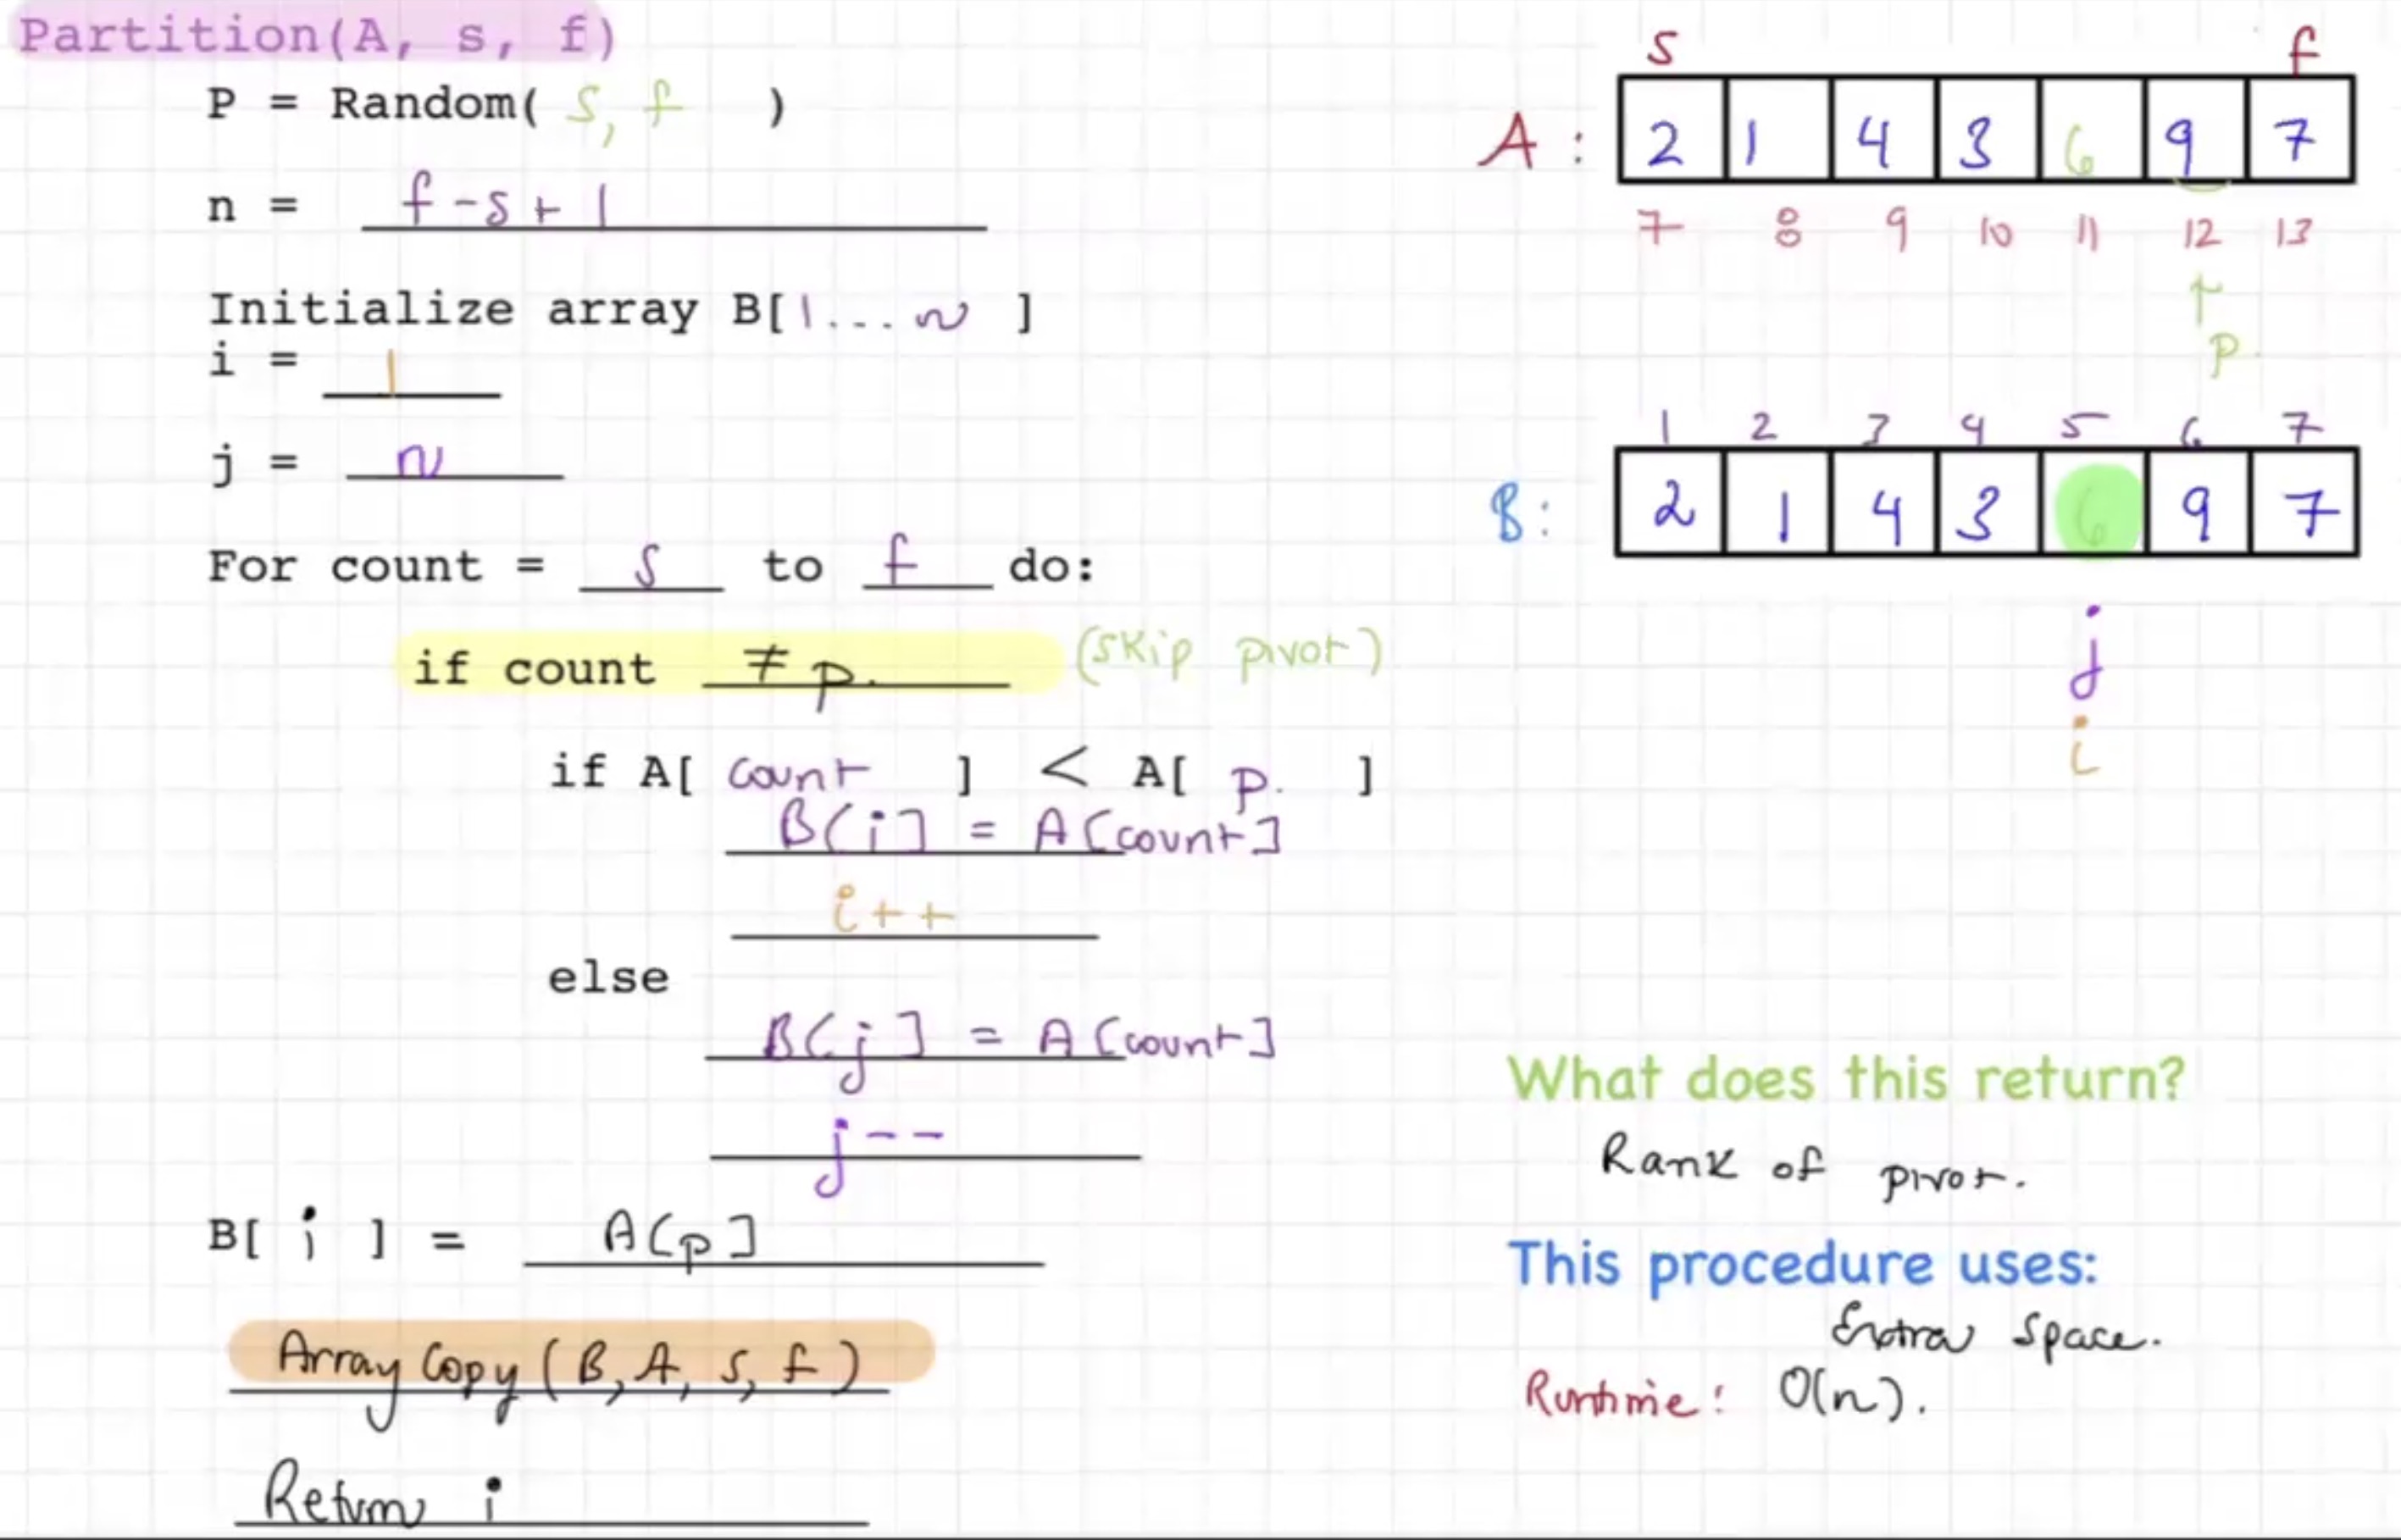 Partition(A, s, f)
P = Random( s, f )
n = f-s+1
Initialize array B[1...n ]
i = 1
j = n
For count = s to f do:
if count ≠ p. (skip pivot)
if A[ count ] < A[ p. ]
B[i] = A[count]
i++
else
B[j] = A[count]
j--
B[ i ] = A[p]
Array Copy (B, A, s, f)
Return i
s f
A: 2 1 4 3 6 9 7
7 8 9 10 11 12 13
↑
p.
1 2 3 4 5 6 7
B: 2 1 4 3 6 9 7
j
i
What does this return?
Rank of pivot.
This procedure uses:
Extra space.
Runtime: O(n).